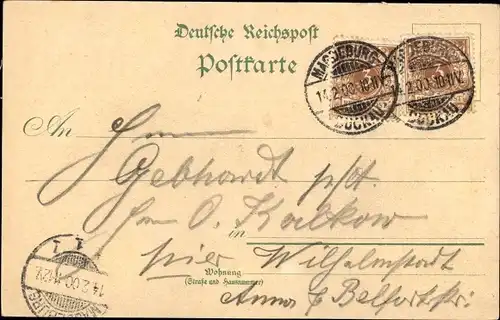 Deutsche Reichspost
Postkarte
MAGDEBURG
14.2.00.10-11V.
BUCKAU
3
MAGDEBURG
2.00.10-11V.
BUCKAU
An Herrn
Gebhardt
Herrn O. Kalkow
in
hier Wilhelmstadt
Wohnung
(Straße und Hausnummer)
Belfortstr:
14.2.00.11-12V.
MAGDEBURG